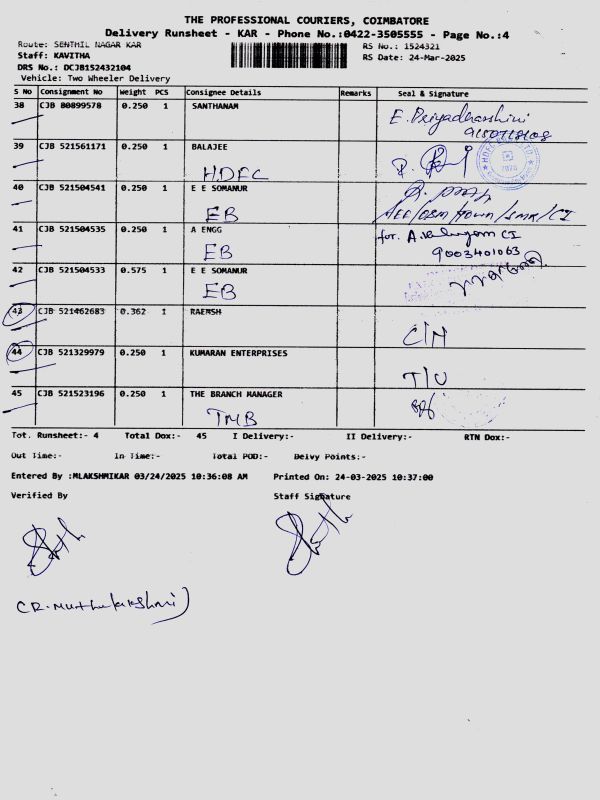 THE PROFESSIONAL COURIERS, COIMBATORE
Delivery Runsheet - KAR - Phone No.:0422-3505555 - Page No.:4
Route: SENTHIL NAGAR KAR RS No.: 1524321
Staff: KAVITHA RS Date: 24-Mar-2025
DRS No.: DCJB152432104
Vehicle: Two Wheeler Delivery
S No Consignment No Weight PCS Consignee Details Remarks Seal & Signature
38 CJB 80899578 0.250 1 SANTHANAM
E. Priyadharshini
39 CJB 521561171 0.250 1 BALAJEE
HDFC
40 CJB 521504541 0.250 1 E E SOMANUR
EB
41 CJB 521504535 0.250 1 A ENGG for. A.
EB 9003401063
42 CJB 521504533 0.575 1 E E SOMANUR
EB
43 CJB 521462683 0.362 1 RAENSH
C/N
44 CJB 521329979 0.250 1 KUMARAN ENTERPRISES
T/U
45 CJB 521523196 0.250 1 THE BRANCH MANAGER
TMB
Tot. Runsheet:- 4 Total Dox:- 45 I Delivery:- II Delivery:- RTN Dox:-
Out Time:- In Time:- Total POD:- Delvy Points:-
Entered By :MLAKSHMIKAR 03/24/2025 10:36:08 AM Printed On: 24-03-2025 10:37:00
Verified By Staff Signature
(R. Muthulakshmi)